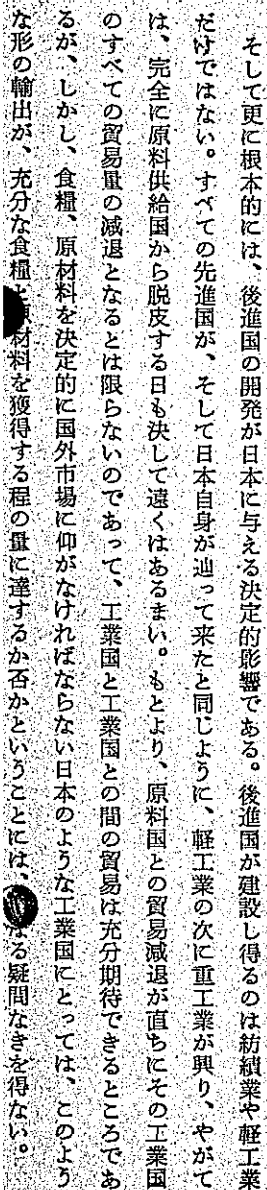 そして更に根本的には、後進国の開発が日本に与える決定的影響である。後進国が建設し得るのは紡績業や軽工業
だけではない。すべての先進国が、そして日本自身が辿って来たと同じように、軽工業の次に重工業が興り、やがて
は、完全に原料供給国から脱皮する日も決して遠くはあるまい。もとより、原料国との貿易減退が直ちにその工業国
のすべての貿易量の減退となるとは限らないのであって、工業国と工業国との間の貿易は充分期待できるところであ
るが、しかし、食糧、原材料を決定的に国外市場に仰がなければならない日本のような工業国にとっては、このよう
な形の輸出が、充分な食糧と材料を獲得する程の量に達するか否かということには、なる疑問なきを得ない。